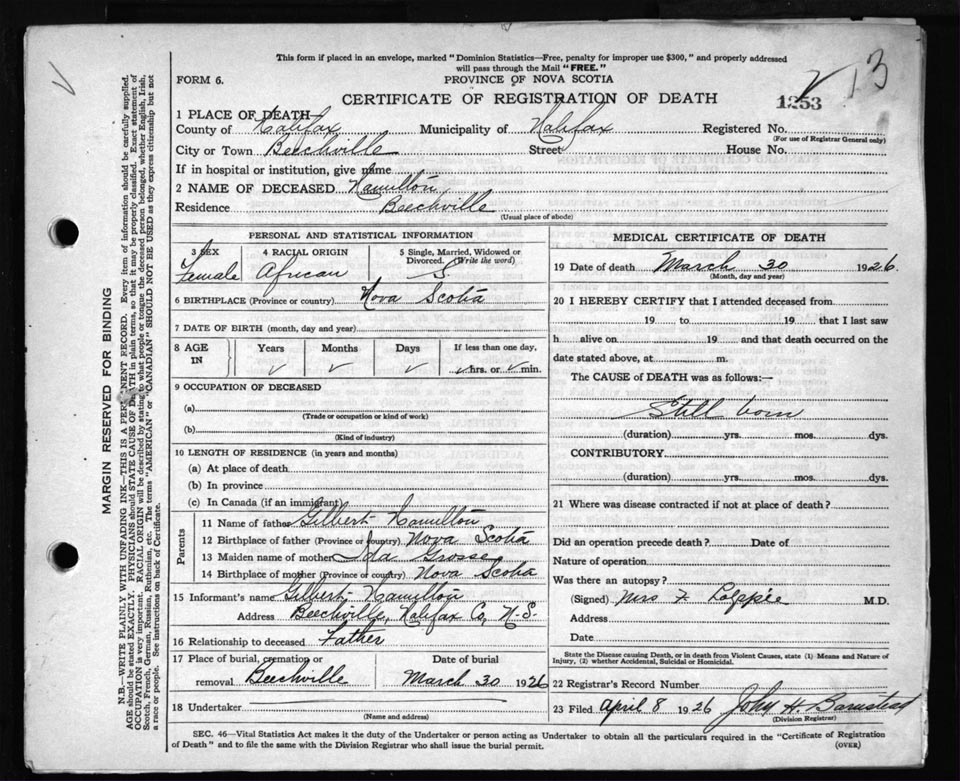 This form if placed in an envelope, marked "Dominion Statistics—Free, penalty for improper use $300," and properly addressed
will pass through the Mail "FREE."
FORM 6.
PROVINCE OF NOVA SCOTIA
CERTIFICATE OF REGISTRATION OF DEATH
1253
13
1 PLACE OF DEATH
County of Halifax Municipality of Halifax Registered No.
(For use of Registrar General only)
City or Town Beechville Street House No.
If in hospital or institution, give name
2 NAME OF DECEASED Hamilton
Residence Beechville
(Usual place of abode)
PERSONAL AND STATISTICAL INFORMATION
3 SEX 4 RACIAL ORIGIN 5 Single, Married, Widowed or
Divorced. (Write the word)
Female African S
6 BIRTHPLACE (Province or country) Nova Scotia
7 DATE OF BIRTH (month, day and year)
8 AGE IN Years Months Days If less than one day,
hrs. or min.
9 OCCUPATION OF DECEASED
(a)
(Trade or occupation or kind of work)
(b)
(Kind of industry)
10 LENGTH OF RESIDENCE (in years and months)
(a) At place of death
(b) In province
(c) In Canada (if an immigrant)
Parents
11 Name of father Gilbert Hamilton
12 Birthplace of father (Province or country) Nova Scotia
13 Maiden name of mother Ida Grosse
14 Birthplace of mother (Province or country) Nova Scotia
15 Informant's name Gilbert Hamilton
Address Beechville, Halifax Co, N-S
16 Relationship to deceased Father
17 Place of burial, cremation or Date of burial
removal Beechville March 30 1926
18 Undertaker
(Name and address)
MEDICAL CERTIFICATE OF DEATH
19 Date of death March 30 1926.
(Month, day and year)
20 I HEREBY CERTIFY that I attended deceased from
19 to 19 that I last saw
h alive on 19 and that death occurred on the
date stated above, at m.
The CAUSE of DEATH was as follows:—
Still born
(duration) yrs. mos. dys.
CONTRIBUTORY
(duration) yrs. mos. dys.
21 Where was disease contracted if not at place of death?
Did an operation precede death? Date of
Nature of operation
Was there an autopsy?
(Signed) Mrs F. M.D.
Address
Date
State the Disease causing Death, or in death from Violent Causes, state (1) Means and Nature of
Injury, (2) whether Accidental, Suicidal or Homicidal.
22 Registrar's Record Number
23 Filed April 8 1926 John H. Barnstead
(Division Registrar)
SEC. 46—Vital Statistics Act makes it the duty of the Undertaker or person acting as Undertaker to obtain all the particulars required in the "Certificate of Registration
of Death" and to file the same with the Division Registrar who shall issue the burial permit.
(OVER)
MARGIN RESERVED FOR BINDING
N.B.—WRITE PLAINLY WITH UNFADING INK—THIS IS A PERMANENT RECORD. Every item of information should be carefully supplied.
AGE should be stated EXACTLY. PHYSICIANS should STATE CAUSE OF DEATH in plain terms, so that it may be properly classified. Exact statement of
OCCUPATION is very important. RACIAL ORIGIN will be described by stating to what people or tongue the deceased person belonged, whether English, Irish,
Scotch, French, German, Russian, Ruthenian, etc. The terms "AMERICAN" or "CANADIAN" SHOULD NOT BE USED as they express citizenship but not
a race or people. See instructions on back of Certificate.